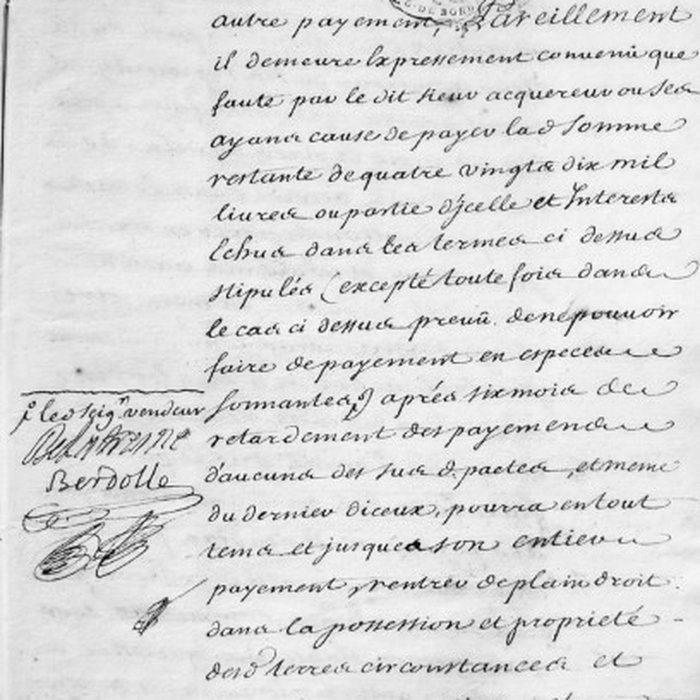 autre payement, Pareillement
il demeure Expressement convenû que
faute par le dit sieur acquereur ou ses
ayans cause de payer la d. somme
restante de quatre vingts dix mil
livres ou partie d'jcelle et Interests
Echus dans les termes ci dessus
stipulés (excepté toute fois dans
le cas ci dessus preuû. de ne pouvoir
faire de payement en especes
sonnantes) après six mois de
retardement des payemens
d'aucuns des sus d. pactes, et meme
du dernier diceux, pourra en tout
tems et jusques a son entier
payement, rentrer de plain droit
dans la possession et propriété
des d. terres circonstances et
le seigr. vendeur
Berdolle